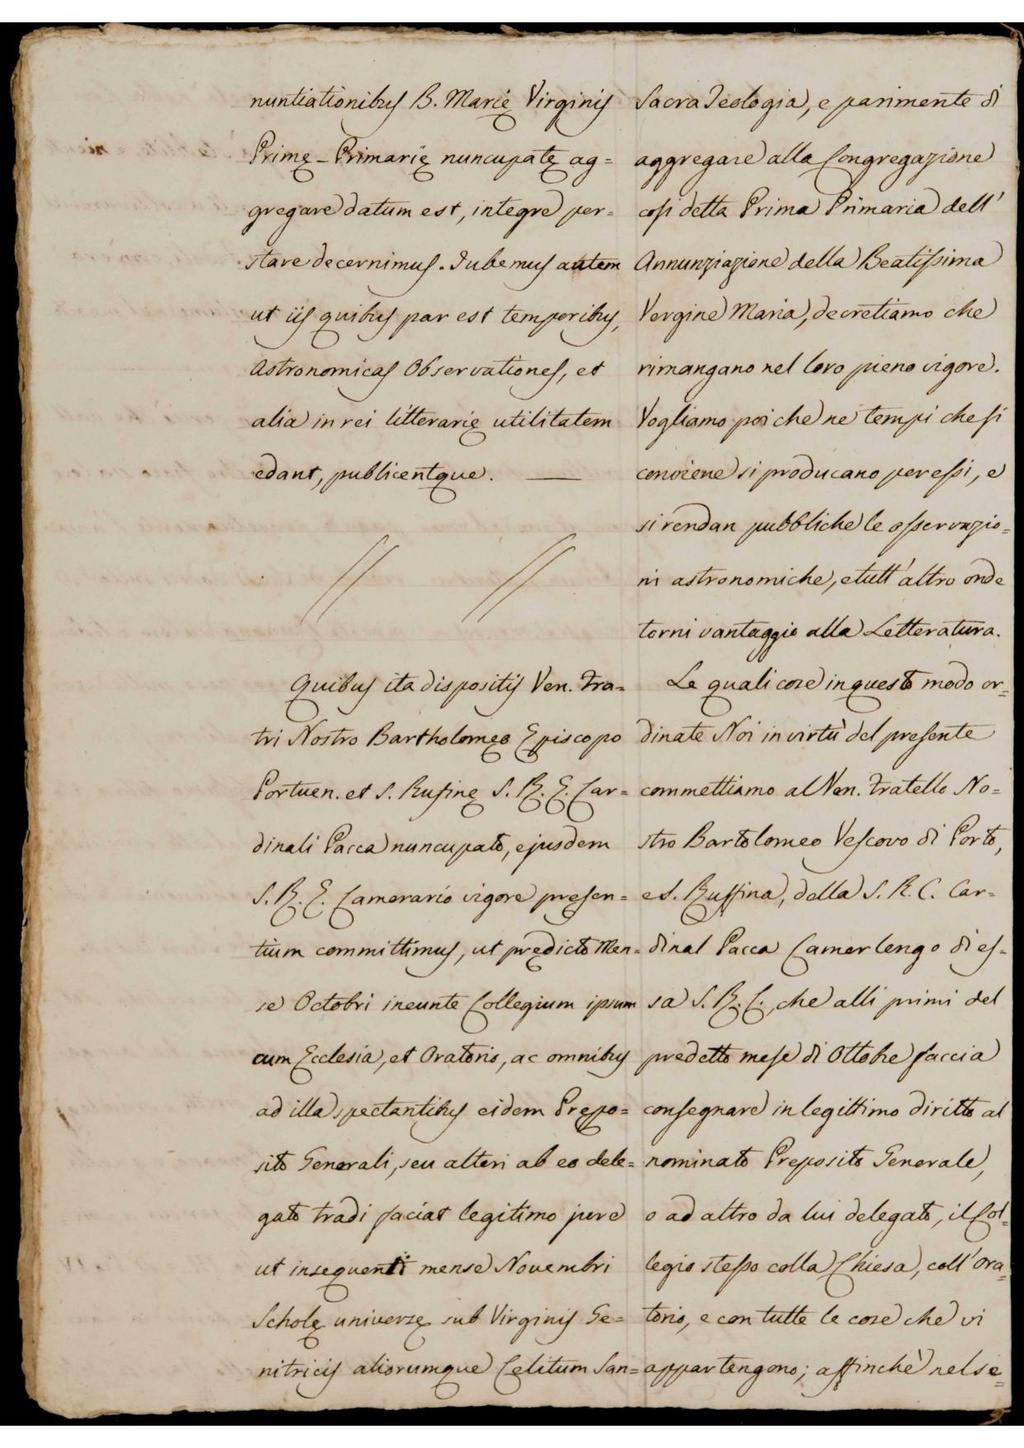 nuntiationibus B. Marię Virginis
Primę-Primarię nuncupatę ag=
gregare datum est, integre per=
stare decernimus. Iubemus autem
ut iis quibus par est temporibus,
Astronomicas Observationes, et
alia in rei litterarię utilitatem
edant, publicentque. —
Quibus ita dispositis Ven. Fra=
tri Nostro Bartholomęo Episcopo
Portuen. et S. Rufinę S. R. E. Car=
dinali Pacca nuncupato, ejusdem
S. R. E. Camerario vigore presen=
tium committimus, ut prędicto Men=
se Octobri ineunte Collegium ipsum
cum Ecclesia, et Oratorio, ac omnibus
ad illa spectantibus eidem Prępo=
sito Generali, seu alteri ab eo dele=
gato tradi faciat legitimo jure
ut insequenti mense Novembri
Scholę universę sub Virginis Ge=
nitricis aliorumque Cęlitum San=
Sacra Teologia, e parimente di
aggregare alla Congregazione
così detta Prima Primaria dell'
Annunziazione della Beatissima
Vergine Maria, decretiamo che
rimangano nel loro pieno vigore.
Vogliamo poi che ne tempi che si
conviene si producano per essi, e
si rendan pubbliche le osservazio=
ni astronomiche, e tutt'altro onde
torni vantaggio alla Letteratura.
Le quali cose in questo modo or=
dinate Noi in virtù del presente
commettiamo al Ven. Fratello No=
stro Bartolomeo Vescovo di Porto,
e S. Ruffina, della S. R. C. Car=
dinal Pacca Camerlengo di es=
sa S. R. C. che alli primi del
predetto mese di Ottobre faccia
consegnare in legittimo diritto al
nominato Preposito Generale,
o ad altro da lui delegato, il Col=
legio stesso colla Chiesa, coll'Ora=
torio, e con tutte le cose che vi
appartengono; affinchè nel se=